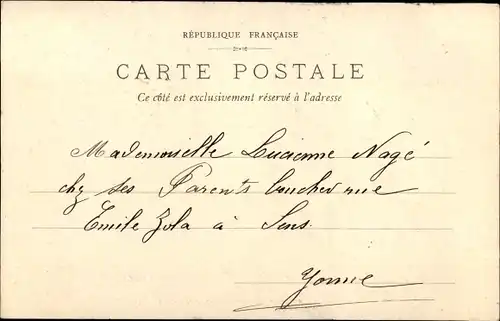 RÉPUBLIQUE FRANÇAISE
CARTE POSTALE
Ce côté est exclusivement réservé à l'adresse
Mademoiselle Lucienne Nagé
chz ses Parents boucher rue
Emile Zola à Sens.
Yonne